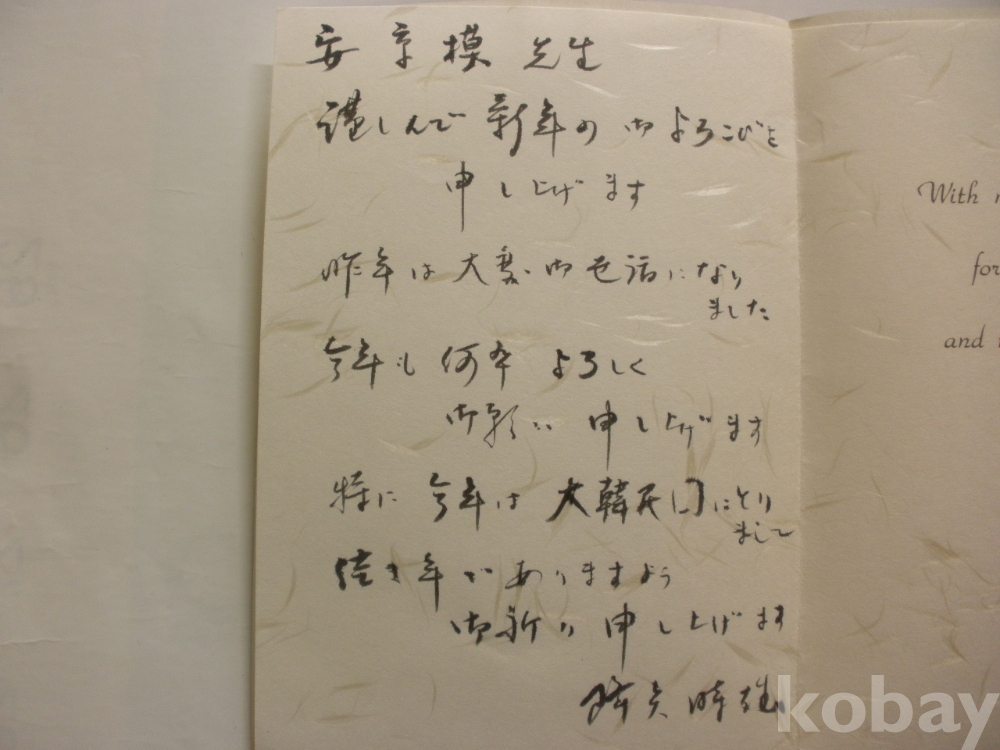 安京模先生
謹しんで新年の御よろこびを
申し上げます
昨年は大変御世話になり
ました
今年も何卒よろしく
御願い申し上げます
特に今年は大韓民国にとり
まして
佳き年でありますよう
御祈り申し上げます
時雄
With
for
and
kobay